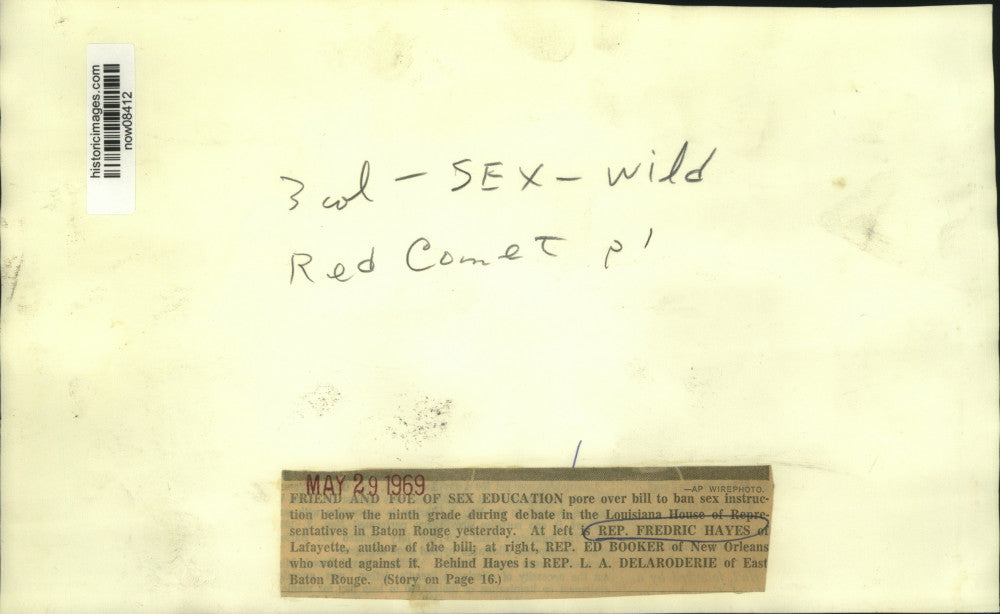 historicimages.com
now08412
3 col - SEX - Wild
Red Comet p1
MAY 29 1969
—AP WIREPHOTO.
FRIEND AND FOE OF SEX EDUCATION pore over bill to ban sex instruc-
tion below the ninth grade during debate in the Louisiana House of Repre-
sentatives in Baton Rouge yesterday. At left is REP. FREDRIC HAYES of
Lafayette, author of the bill; at right, REP. ED BOOKER of New Orleans
who voted against it. Behind Hayes is REP. L. A. DELARODERIE of East
Baton Rouge. (Story on Page 16.)